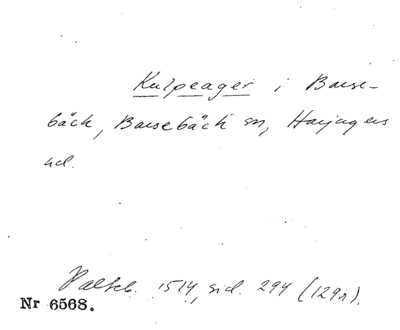 Kulpeager i Barse-
bäck, Barsebäck sn, Harjagers
hd.
Paltsb. 1514, sid. 294 (129r).
Nr 6568.